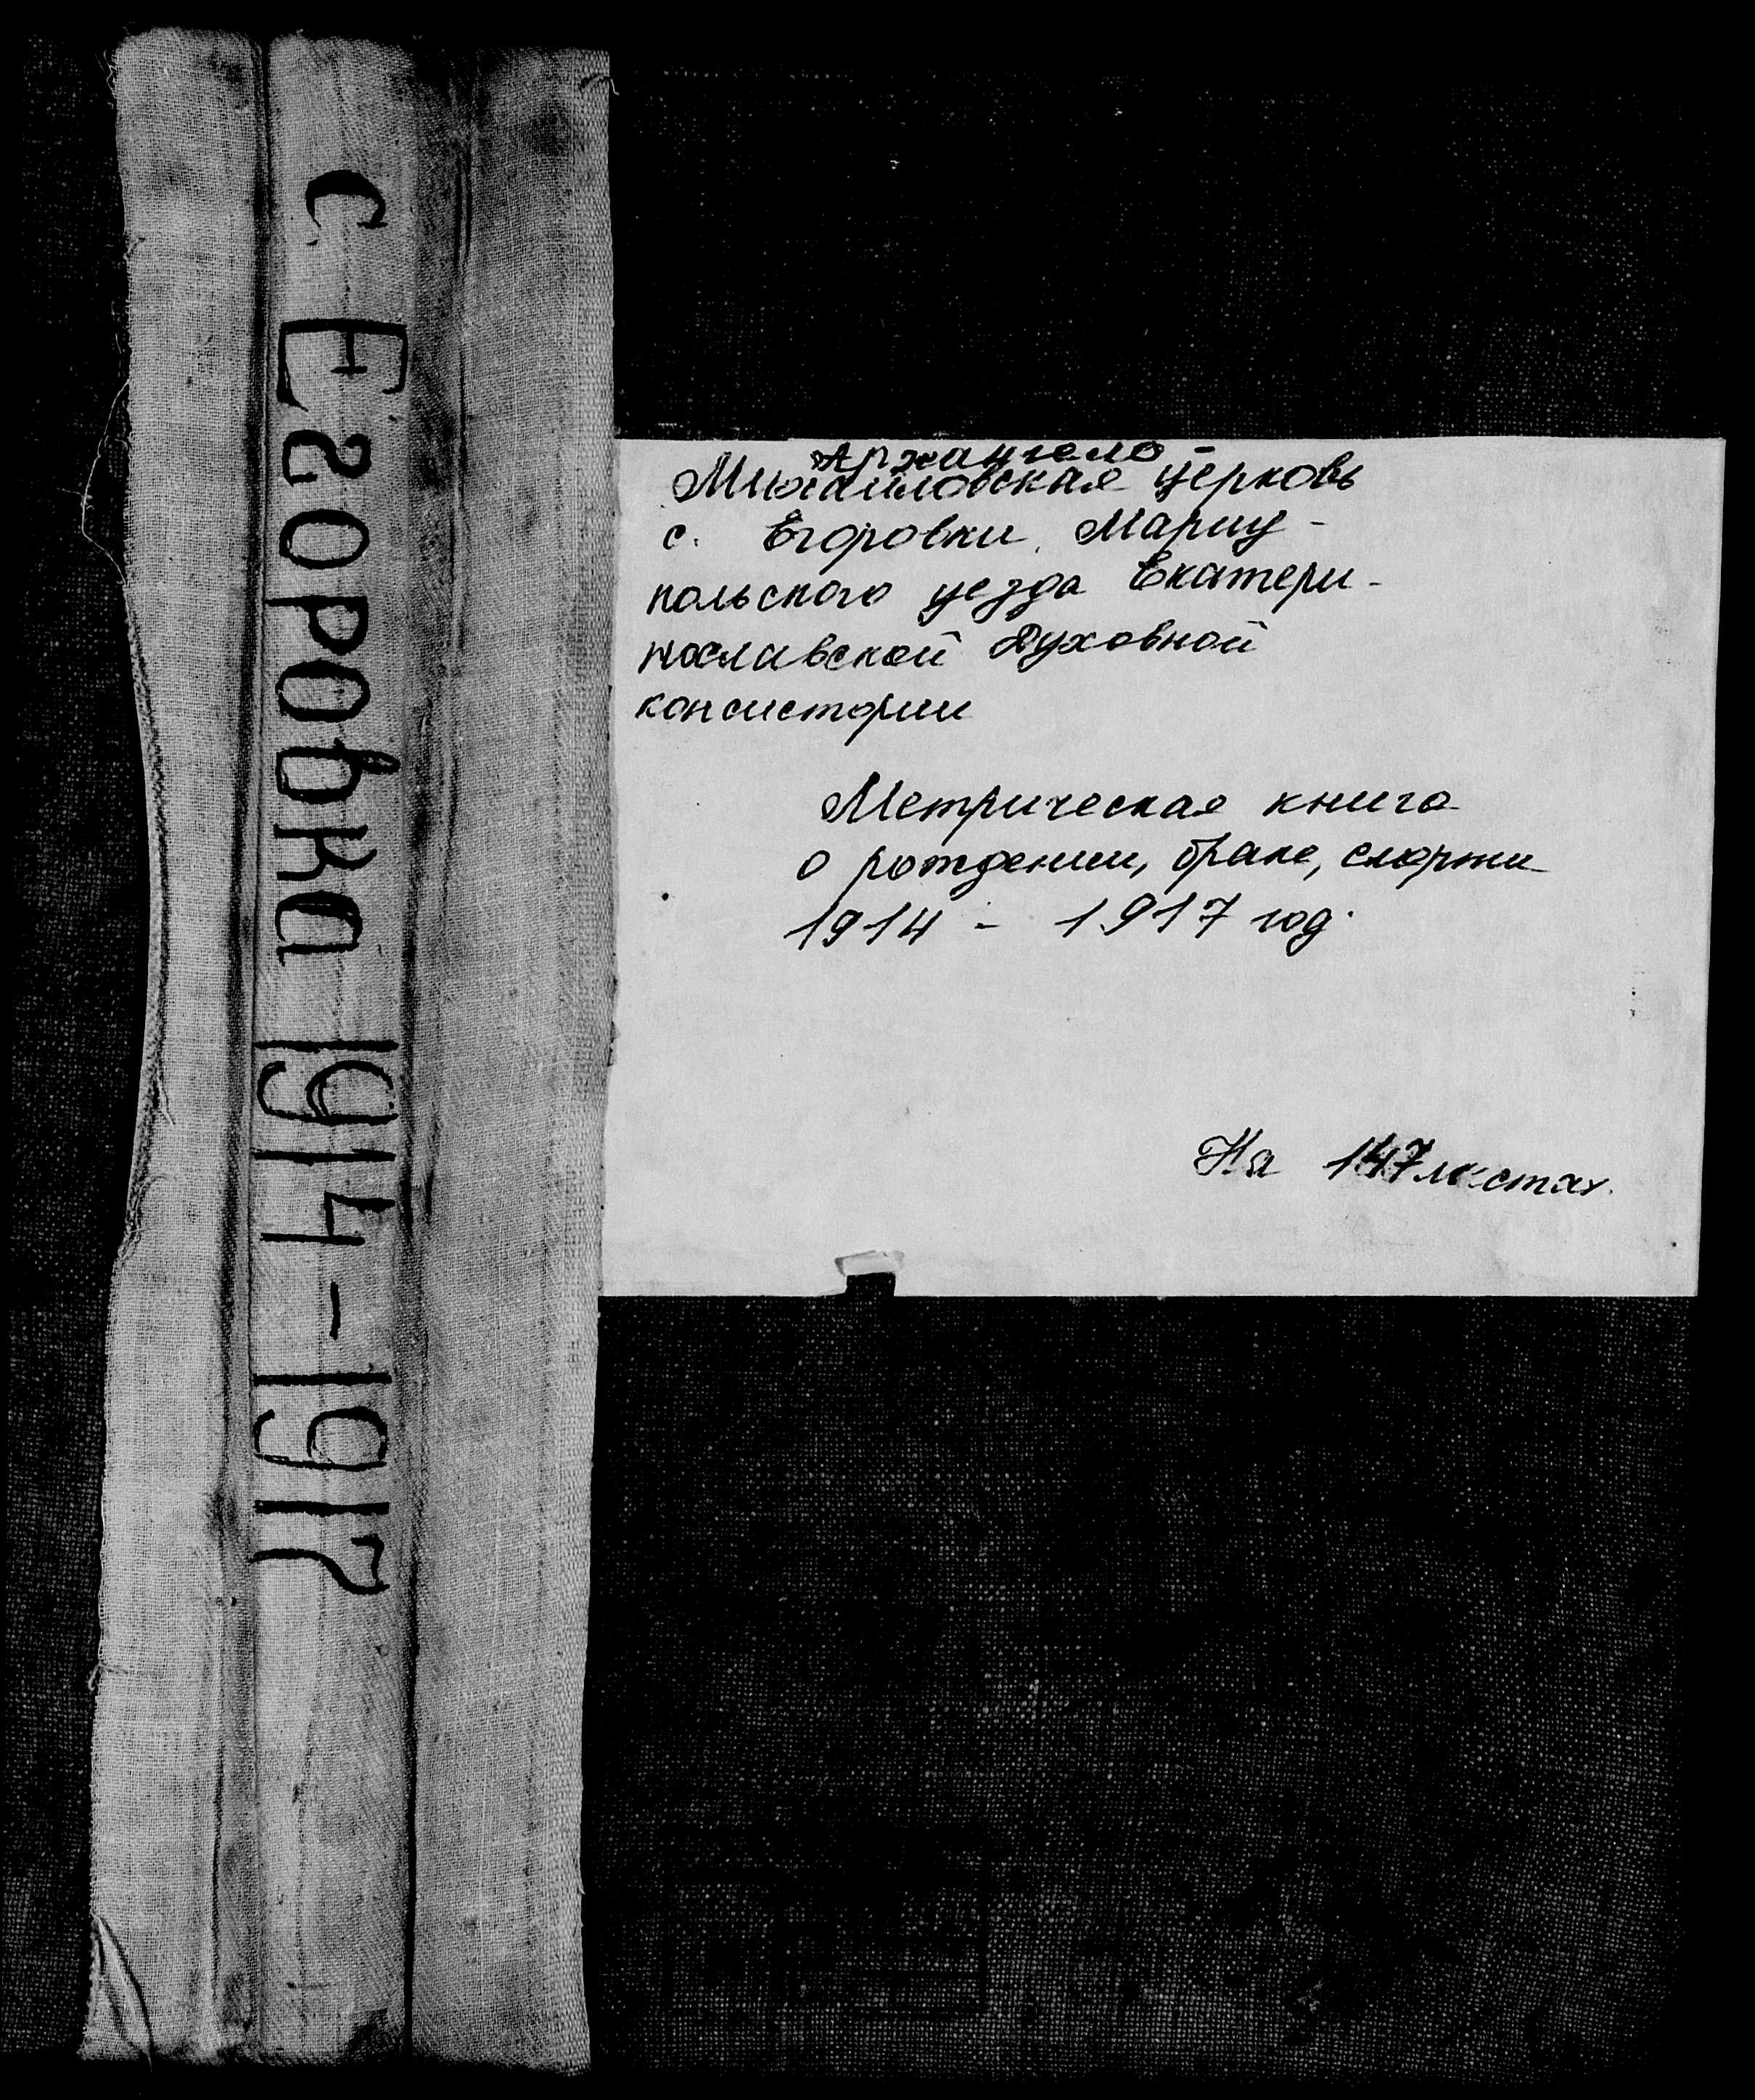 с Егоровка 1914-1917
Архангело-
Михайловская церковь
с. Егоровки Мариу-
польского уезда Екатери-
нославской Духовной
консистории
Метрическая книга
о рождении, браке, смерти
1914 - 1917 год.
На 147 листах.